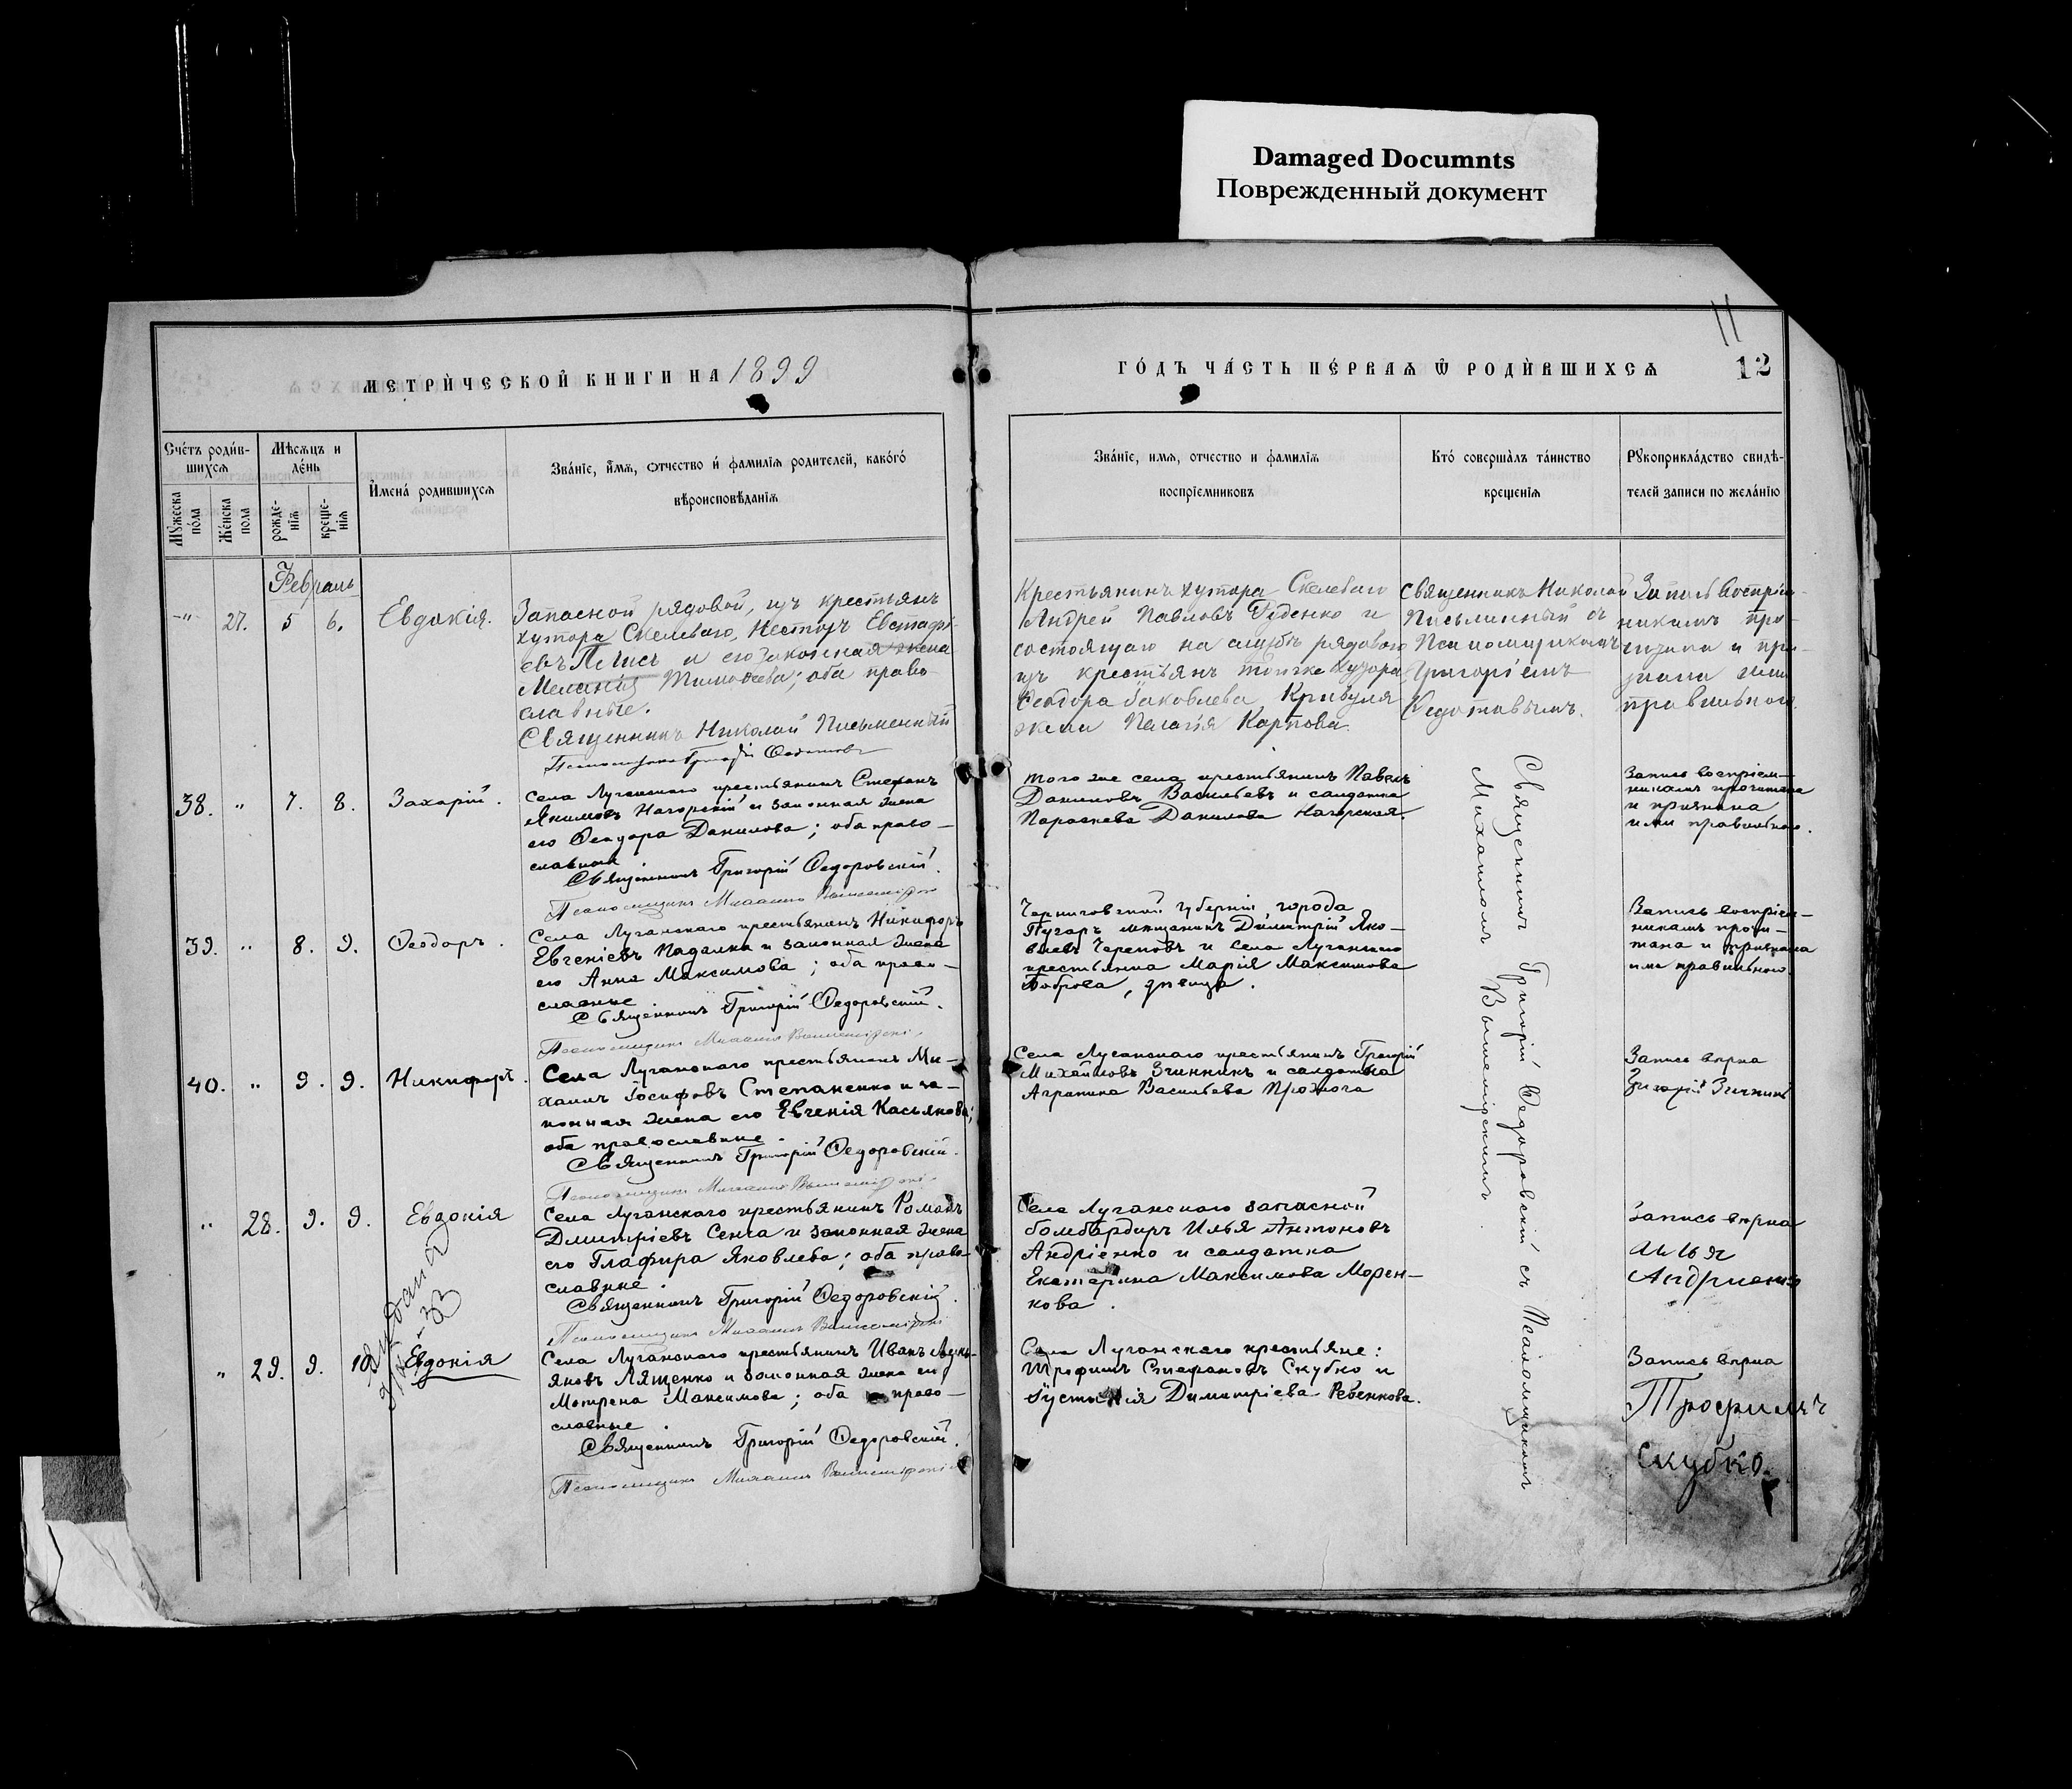 Damaged Documnts
Поврежденный документ
11
МЕТРИ́ЧЕСКОЙ КНИГИ НА 1899
ГО́ДЪ ЧА́СТЬ ПЕ́РВАЯ Ѿ РОДИ́ВШИХСЯ
12
Сче́тъ роди́в-
шихся
Мѣсяцъ и
де́нь
И҆мена́ родившихся
Зва́нїе, и҆мя, отчество и҆ фамилїя родителей, како́го
вѣроисповѣданїя
Мꙋжеска
по́ла
Же́нска
пола
рожде-
нїя
креще-
нїя
Зва́нїе, имя, отчество и фамилїя
воспрїемниковъ
Кто́ совершалъ та́инство
крещенїя
Рꙋкоприкла́дство свидѣ-
телей записи по жела́нїю
Февраль
" 27. 5 6. Евдокія.
Запасной рядовой, изъ крестьянъ
хутора Скелеваго, Несторъ Евстафі-
евъ и его законная жена
Меланія Тимофеева; оба право-
славные.
Священникъ Николай Письменный
Псаломщикъ Григорій Федотовъ
Крестьянинъ хутора Скелеваго
Андрей Павловъ Руденко и
состоящаго на службѣ рядового
изъ крестьянъ того же хутора
Феодора Іаковлева Кривуля
жена Пелагія Карпова.
Священникъ Николай
Письменный съ
Псаломщикомъ
Григоріемъ
Федотовымъ.
Запись воспріем-
никамъ про-
читана и при-
знана ими
правильной
38. " 7. 8. Захарій.
Села Луганскаго крестьянинъ Стефанъ
Якимовъ Нагорскій и законная жена
его Феодора Данилова; оба право-
славные
Священникъ Григорій Федоровскій.
Псаломщикъ Михаилъ Вышемірскій
того же села крестьянинъ Павелъ
Даниловъ Васильевъ и солдатка
Параскева Данилова Нагорская.
Запись воспріем-
никамъ прочитана
и признана
ими правильною.
39. " 8. 9. Феодоръ.
Села Луганскаго крестьянинъ Никифоръ
Евгеніевъ Падалка и законная жена
его Анна Максимова; оба право-
славные
Священникъ Григорій Федоровскій.
Псаломщикъ Михаилъ Вышемірскій
Черниговской губерніи города
мѣщанинъ Димитрій Яко-
влевъ Череповъ и села Луганскаго
крестьянка Марія Максимова
Боброва, дѣвица.
Запись воспріем-
никамъ прочи-
тана и признана
ими правильною
40. " 9. 9. Никифоръ.
Села Луганскаго крестьянинъ Ми-
хаилъ Іосифовъ Степаненко и за-
конная жена его Евгенія Касьянова;
оба православные.
Священникъ Григорій Федоровскій.
Псаломщикъ Михаилъ Вышемірскій
Села Луганскаго крестьянинъ Григорій
Михайловъ Зчинникъ и солдатка
Агрипина Васильева Прожога
Запись вѣрна
Григорій Зчинникъ
" 28. 9. 9. Евдокія
Села Луганскаго крестьянинъ Романъ
Димитріевъ Сенча и законная жена
его Глафира Яковлева; оба право-
славные.
Священникъ Григорій Федоровскій.
Псаломщикъ Михаилъ Вышемірскій
Села Луганскаго запасной
бомбардиръ Илья Антоновъ
Андріенко и солдатка
Екатерина Максимова Морен-
кова.
Запись вѣрна
Илья
Андриенко
" 29. 9. 10. Евдокія
Села Луганскаго крестьянинъ Иванъ
Лященко и законная жена его
Мотрена Максимова; оба право-
славные.
Священникъ Григорій Федоровскій.
Псаломщикъ Михаилъ Вышемірскій
Села Луганскаго крестьяне:
Трофимъ Стефановъ Скубко и
Іустинія Димитріева Ребенкова.
Запись вѣрна
Трофимъ
Скубко.
Священникъ Григорій Федоровскій съ Псаломщикомъ
Михаиломъ Вышемірскимъ.